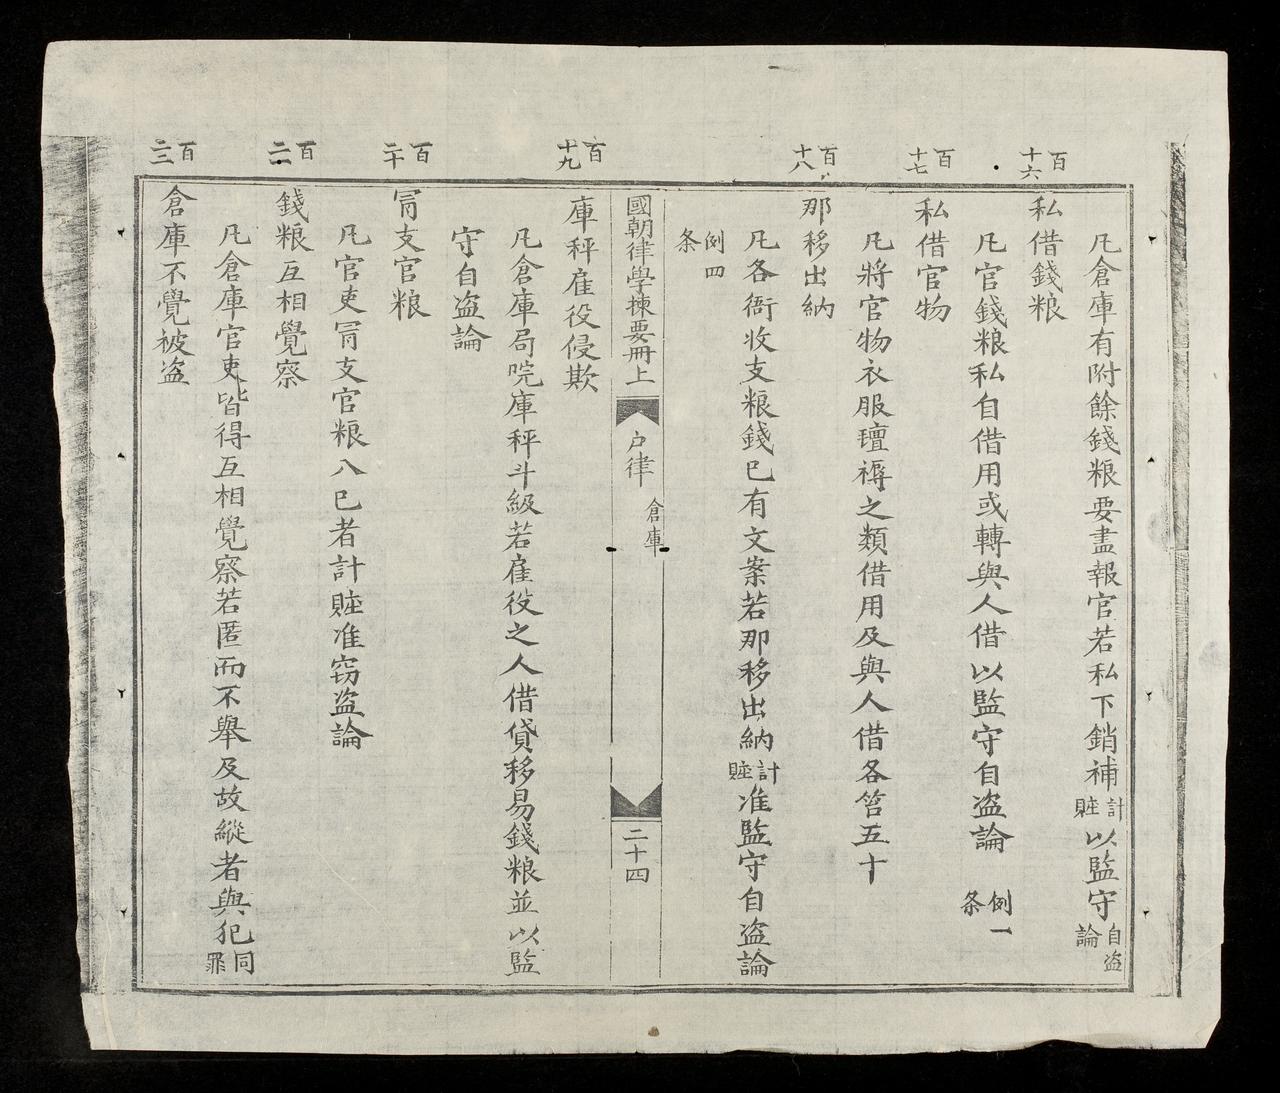 凡倉庫有附餘錢粮要盡報官若私下銷補計賍以監守自盗論
百十六
私借錢粮
凡官錢粮私自借用或轉與人借以監守自盗論 例一条
百十七
私借官物
凡將官物衣服氊褥之類借用及與人借各笞五十
百十八
那移出納
凡各衙收支粮錢已有文案若那移出納計賍准監守自盗論
例四条
國朝律學揀要冊上 户律 倉庫 二十四
百十九
庫秤雇役侵欺
凡倉庫局院庫秤斗級若雇役之人借貸移易錢粮並以監
守自盗論
百二十
冐支官粮
凡官吏冐支官粮入已者計賍准窃盗論
百二一
錢粮互相覺察
凡倉庫官吏皆得互相覺察若匿而不舉及故縱者與犯同罪
百二三
倉庫不覺被盗